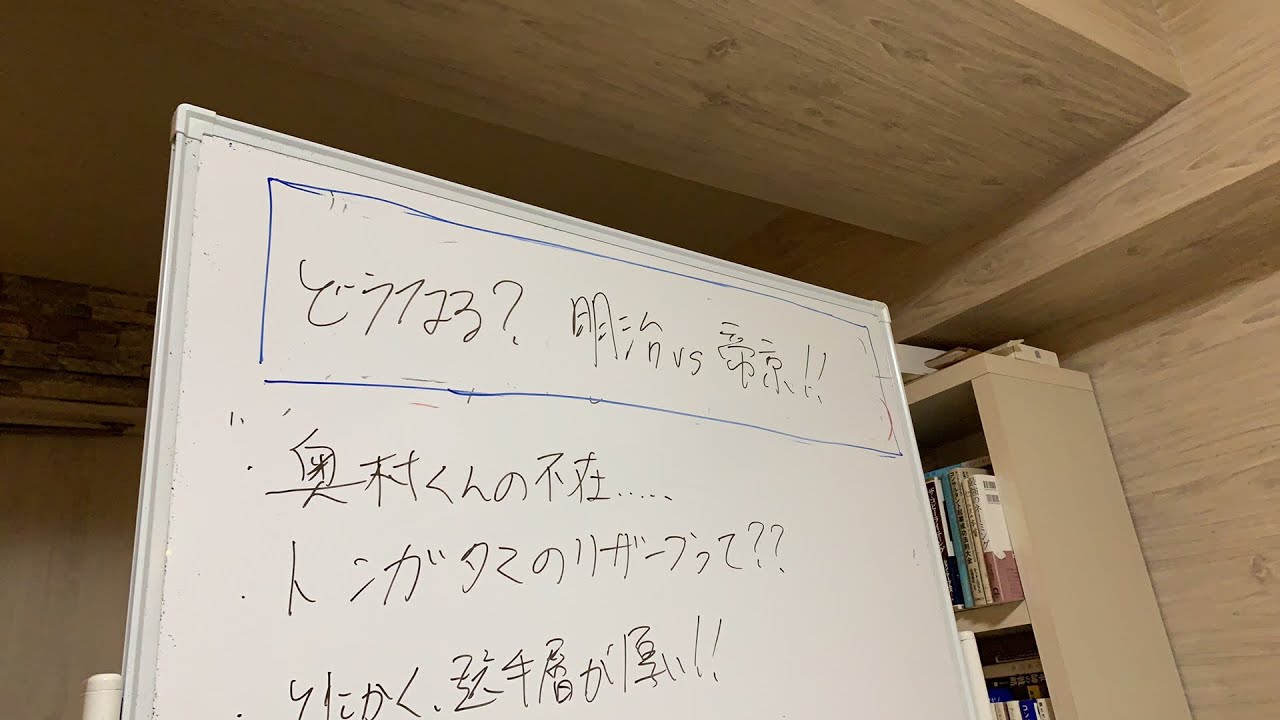 どうなる? 明治vs帝京!!
・奥村くんの不在.....
・トンガタマのリザーブって??
・とにかく、選手層が厚い!!